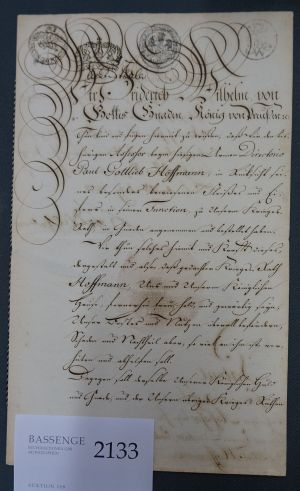 Wir Friderich Wilhelm von
Gottes Gnaden, König von Preußen
Thun kund und fügen hiermit zu wissen, daß Wir den bis-
herigen Assessor beym hiesigen Armen Directorio
Paul Gottlieb Hoffmann, in Rücksicht seines
besonders bewiesenen Fleißes und Ei-
fers in seiner Function, zu Unserm Krieges-
Rath, in Gnaden angenommen und bestellet haben.
Wir thun solches hiermit und Kraft dieses,
dergestalt und also, daß gedachter Krieges-Rath
Hoffmann, Uns und Unserm Königlichen
Hause, fernerhin treu, hold, und gewärtig seyn,
Unser Bestes und Nutzen überall befördern,
Schaden und Nachtheil aber, so viel an ihm ist, ver-
hüten und abhelfen soll.
Dagegen soll derselbe Unserer Königlichen Huld
und Gnade, und der Unsern übrigen Krieges-Räthen
BASSENGE
2133